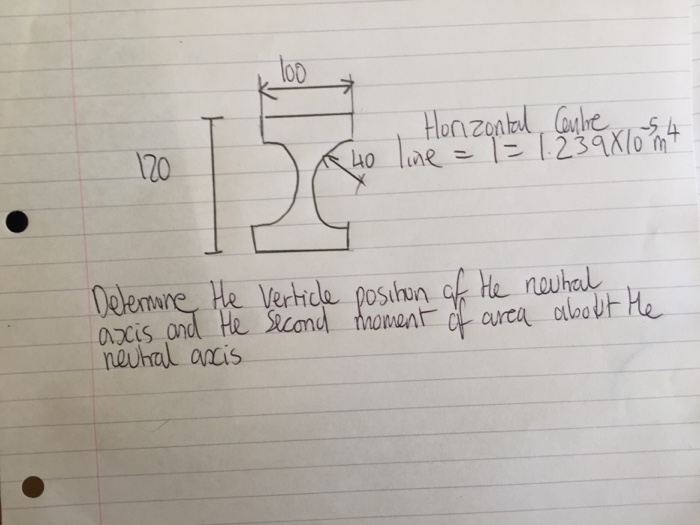 100
120
40
Horizontal Centre
line = I = 1.239x10^-5 m^4
Determine the Verticle position of the neutral
axis and the second moment of area about the
neutral axis